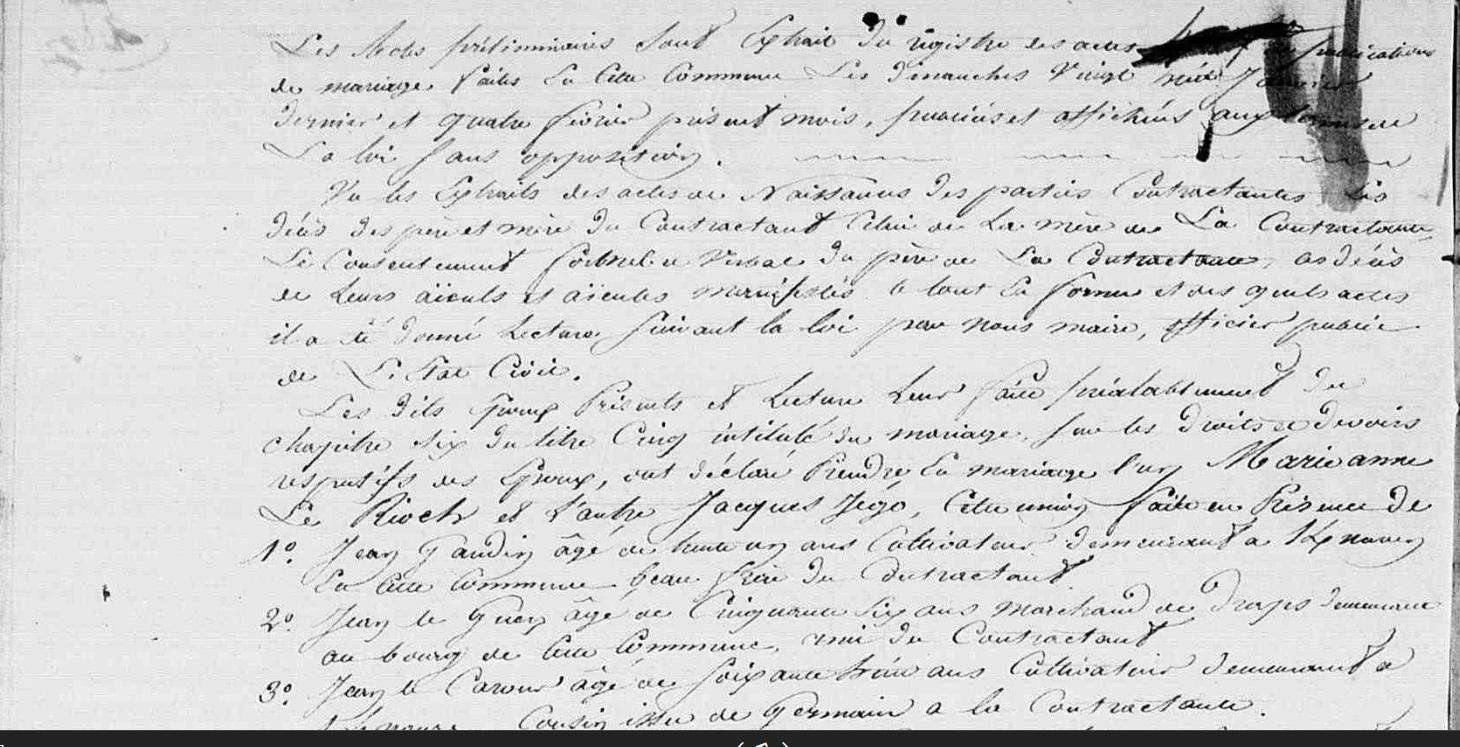 Les Actes préliminaires sont Extrait du registre des actes publications
de mariage faites En Cette Commune Les dimanches Vingt Janvier
dernier et quatre fevrier présent mois, publiés et affichés aux termes de
La loi Sans opposition.
Vu les Extraits des actes de Naissances des parties Contractantes Les
décès des père et mère du Contractant Celui de La mère de La Contractante
Le Consentement formel et Verbal du père de La Contractante, as décès
de Leurs aïeuls et aïeules manifestés le tout En forme et des quels actes
il a été donné Lecture, Suivant la loi par nous maire, officier public
de L'Etat Civil.
Les dits Epoux Présents et Lecture Leur faite préalablement du
chapitre Six du titre Cinq intitulé du mariage, Sur les droits et devoirs
respectifs des Epoux, ont déclaré Prendre En mariage l'un Marie anne
Le Rioch et L'autre Jacques Jégo, Cette union faite en Présence de
1º. Jean Jaudin âgé de trente un ans Cultivateur demeurant a
En Cette Commune beau frère du Contractant
2º. Jean le Guen âgé de Cinquante Six ans marchand de draps demeurant
au bourg de Cette Commune, ami du Contractant
3º. Jean le Carour âgé de Soixante ans Cultivateur demeurant a
Cousin issu de Germain a la Contractante.